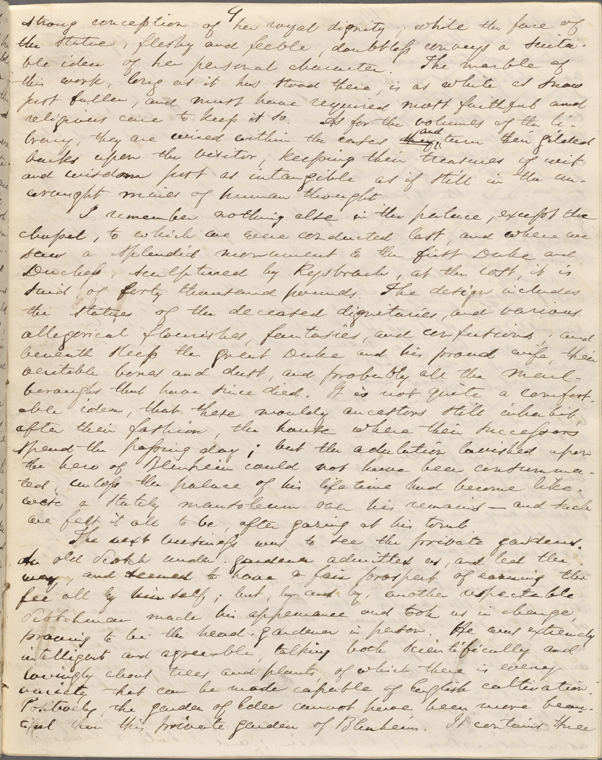 9
strong conception of her royal dignity; while the face of
the statue, fleshy and feeble, doubtless conveys a suita-
ble idea of her personal character. The marble of
this work, long as it has stood there, is as white as snow
just fallen, and must have required most faithful and
religious care to keep it so. As for the volumes of the li-
brary, they are wired within the cases and turn their gilded
backs upon the visitor, keeping their treasures of wit
and wisdom just as intangible as if still in the un-
wrought mines of human thought.
I remember nothing else in the palace, except the
chapel, to which we were conducted last, and where we
saw a splendid monument to the first Duke and
Duchess, sculptured by Rysbrach, at the cost, it is
said, of forty thousand pounds. The design includes
the statues of the deceased dignitaries, and various
allegorical flourishes, fantasies, and confusions; and
beneath sleep the great Duke and his proud wife, their
veritable bones and dust, and probably all the Marl-
boroughs that have since died. It is not quite a comfort-
able idea, that these mouldy ancestors still inhabit,
after their fashion, the house where their successors
spend the passing day; but the adulation lavished upon
the hero of Blenheim could not have been consumma-
ted, unless the palace of his lifetime had become like-
wise a stately mausoleum over his remains — and such
we felt it all to be, after gazing at his tomb.
The next business was to see the private gardens.
An old Scotch under-gardener admitted us, and led the
way, and seemed to have a fair prospect of earning the
fee all by himself; but, by and by, another respectable
Scotchman made his appearance and took us in charge,
proving to be the head-gardener in person. He was extremely
intelligent and agreeable, talking both scientifically and
lovingly about trees and plants, of which there is every
variety that can be made capable of English cultivation.
Positively, the garden of Eden cannot have been more beau-
tiful than this private garden of Blenheim. It contains three